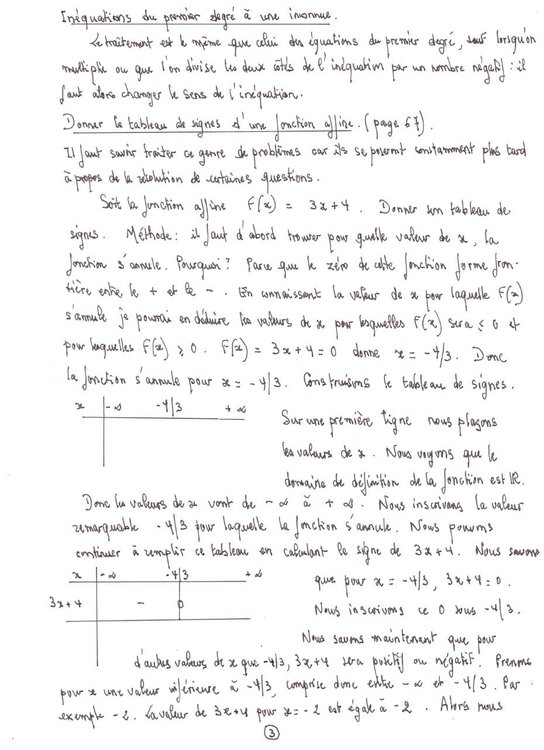 Inéquations du premier degré à une inconnue.
Le traitement est le même que celui des équations du premier degré, sauf lorsqu'on
multiplie ou que l'on divise les deux côtés de l'inéquation par un nombre négatif : il
faut alors changer le sens de l'inéquation.
Donner le tableau de signes d'une fonction affine. (page 67).
Il faut savoir traiter ce genre de problèmes car ils se poseront constamment plus tard
à propos de la résolution de certaines questions.
Soit la fonction affine F(x) = 3x+4. Donner son tableau de
signes. Méthode : il faut d'abord trouver pour quelle valeur de x, la
fonction s'annule. Pourquoi ? Parce que le zéro de cette fonction forme fron-
tière entre le + et le -. En connaissant la valeur de x pour laquelle F(x)
s'annule je pourrai en déduire les valeurs de x pour lesquelles F(x) sera ⩽ 0 et
pour lesquelles F(x) ⩾ 0. F(x) = 3x+4 = 0 donne x = -4/3. Donc
la fonction s'annule pour x = -4/3. Construisons le tableau de signes.
x -∞ -4/3 +∞
Sur une première ligne nous plaçons
les valeurs de x. Nous voyons que le
domaine de définition de la fonction est IR.
Donc les valeurs de x vont de -∞ à +∞. Nous inscrivons la valeur
remarquable -4/3 pour laquelle la fonction s'annule. Nous pouvons
continuer à remplir ce tableau en calculant le signe de 3x+4. Nous savons
x -∞ -4/3 +∞
que pour x = -4/3, 3x+4 = 0.
3x+4 - 0
Nous inscrivons ce 0 sous -4/3.
Nous savons maintenant que pour
d'autres valeurs de x que -4/3, 3x+4 sera positif ou négatif. Prenons
pour x une valeur inférieure à -4/3, comprise donc entre -∞ et -4/3. Par
exemple -2. La valeur de 3x+4 pour x = -2 est égale à -2. Alors nous
3